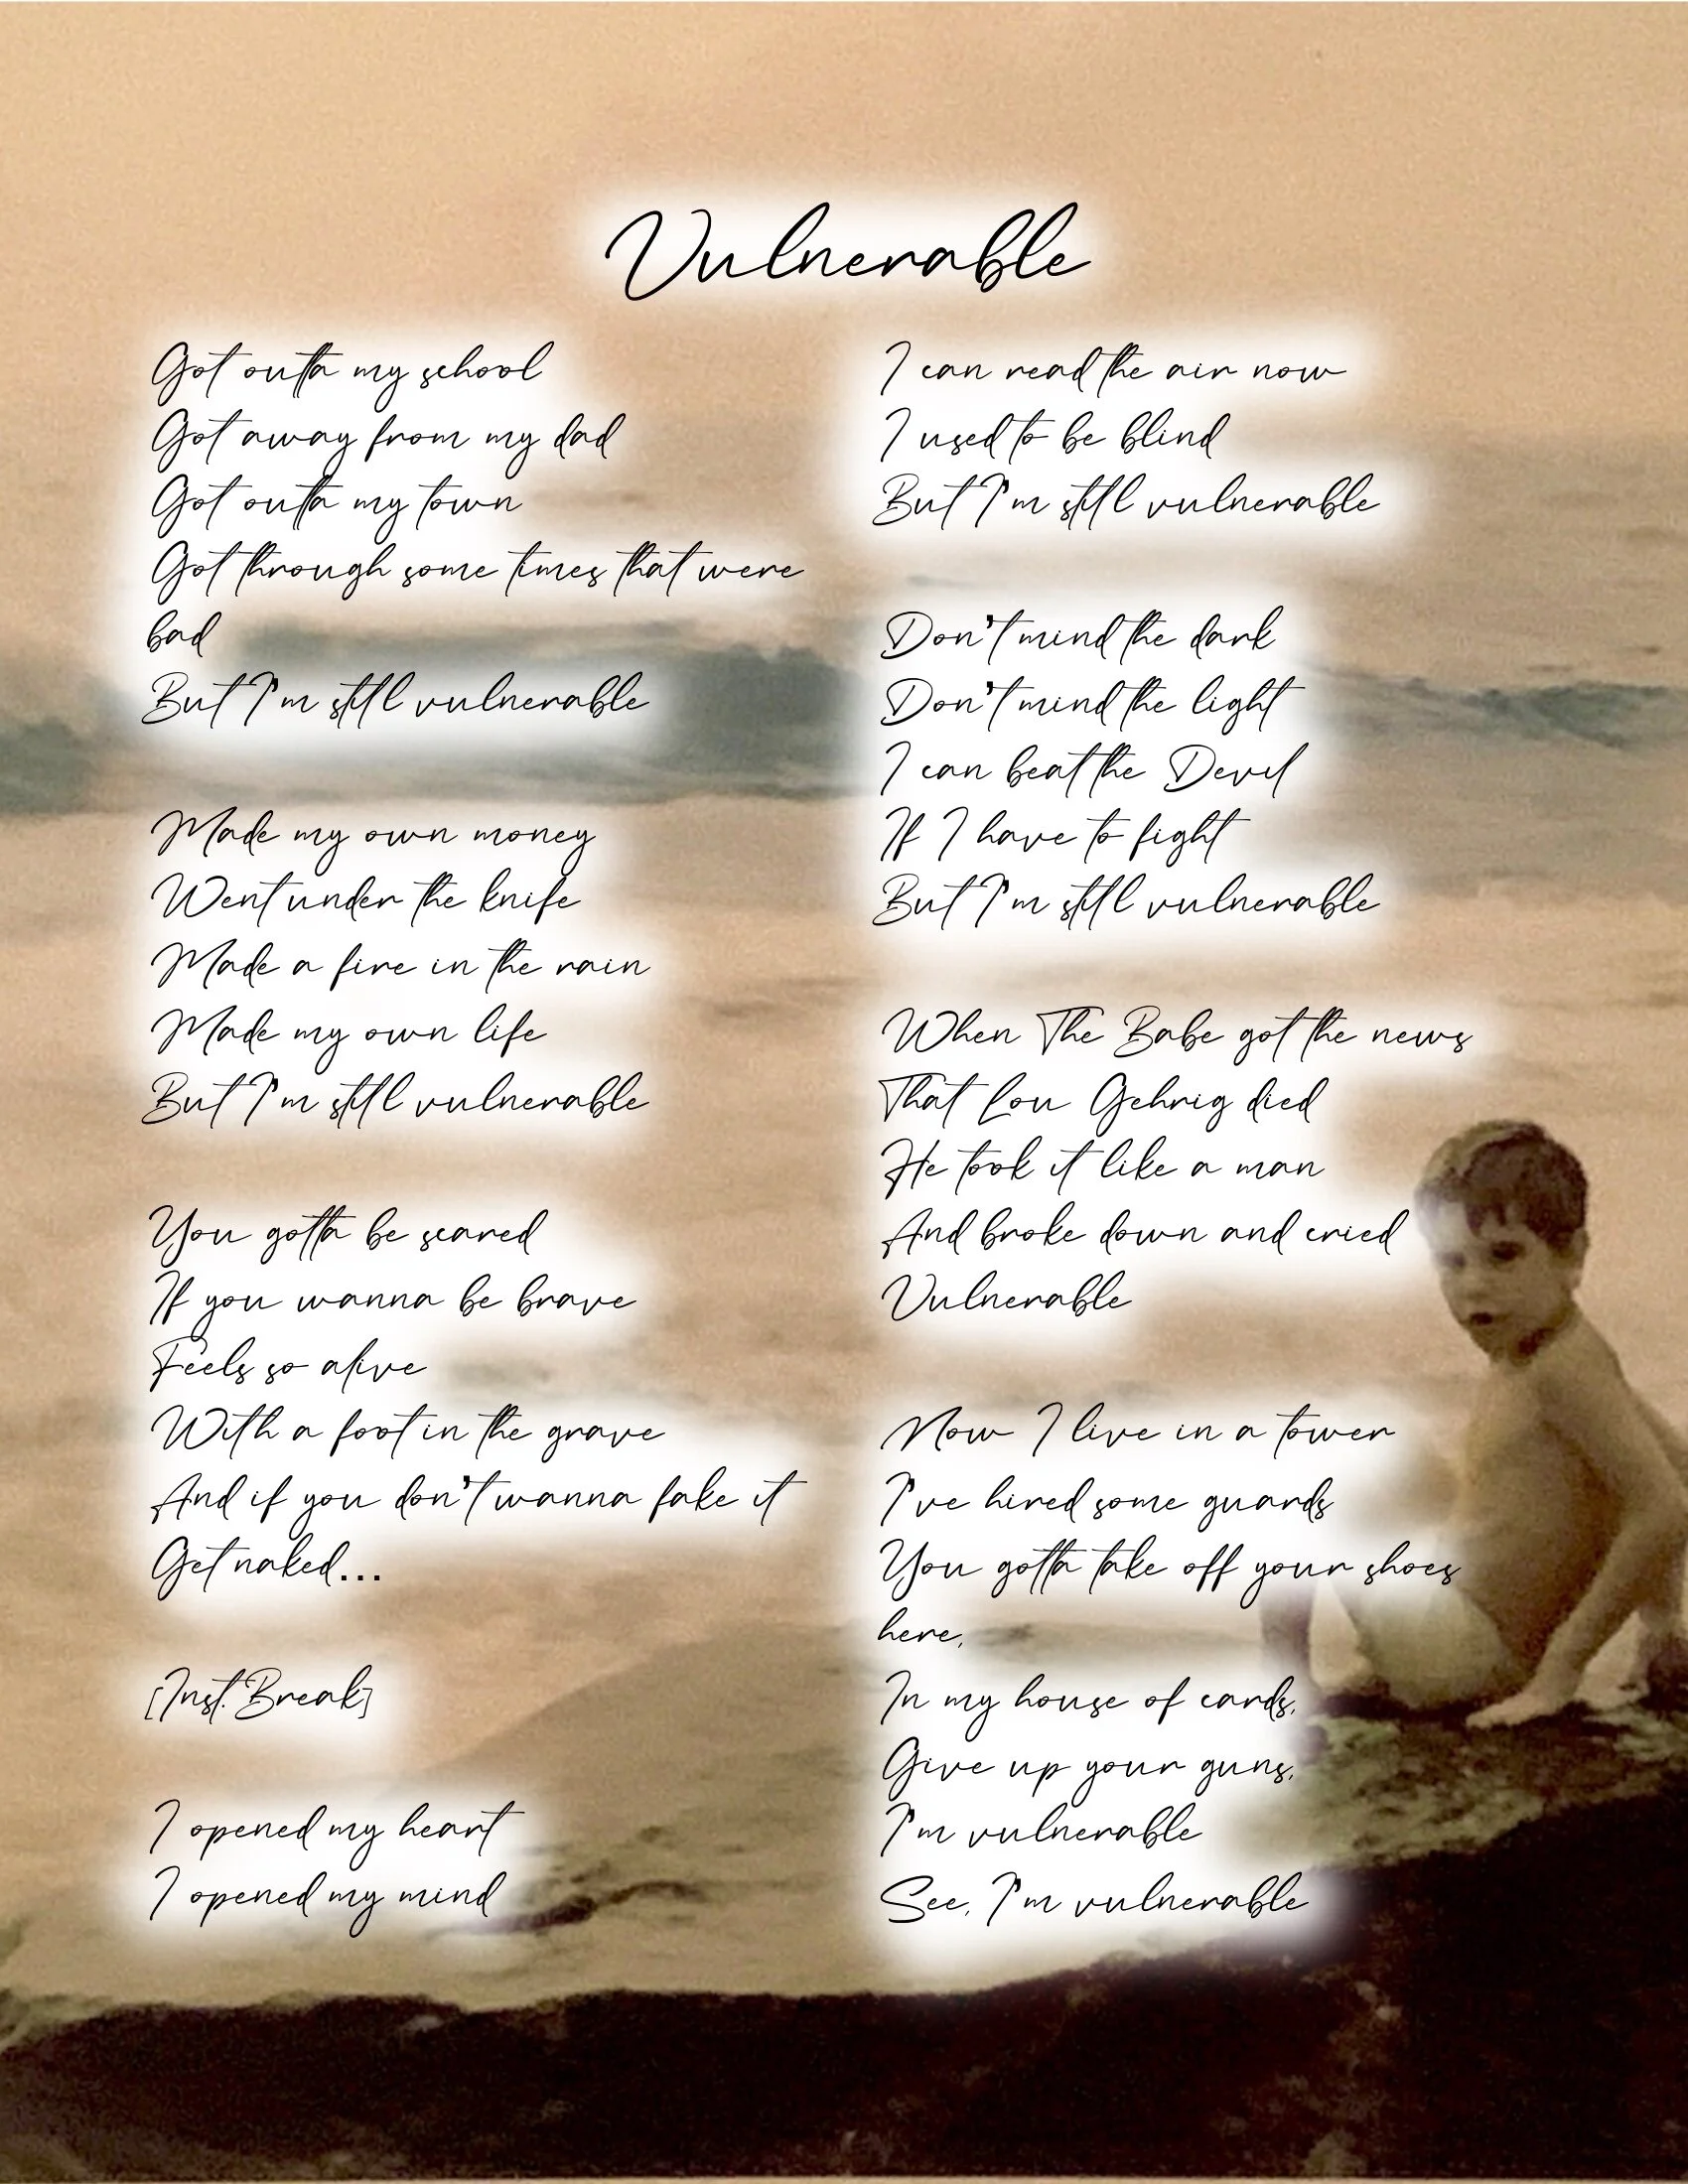 Vulnerable
Got outta my school
Got away from my dad
Got outta my town
Got through some times that were
bad
But I'm still vulnerable
Made my own money
Went under the knife
Made a fire in the rain
Made my own life
But I'm still vulnerable
You gotta be scared
If you wanna be brave
Feels so alive
With a foot in the grave
And if you don't wanna fake it
Get naked...
[Inst. Break]
I opened my heart
I opened my mind
I can read the air now
I used to be blind
But I'm still vulnerable
Don't mind the dark
Don't mind the light
I can beat the Devil
If I have to fight
But I'm still vulnerable
When The Babe got the news
That Lou Gehrig died
He took it like a man
And broke down and cried
Vulnerable
Now I live in a tower
I've hired some guards
You gotta take off your shoes
here,
In my house of cards,
Give up your guns,
I'm vulnerable
See, I'm vulnerable